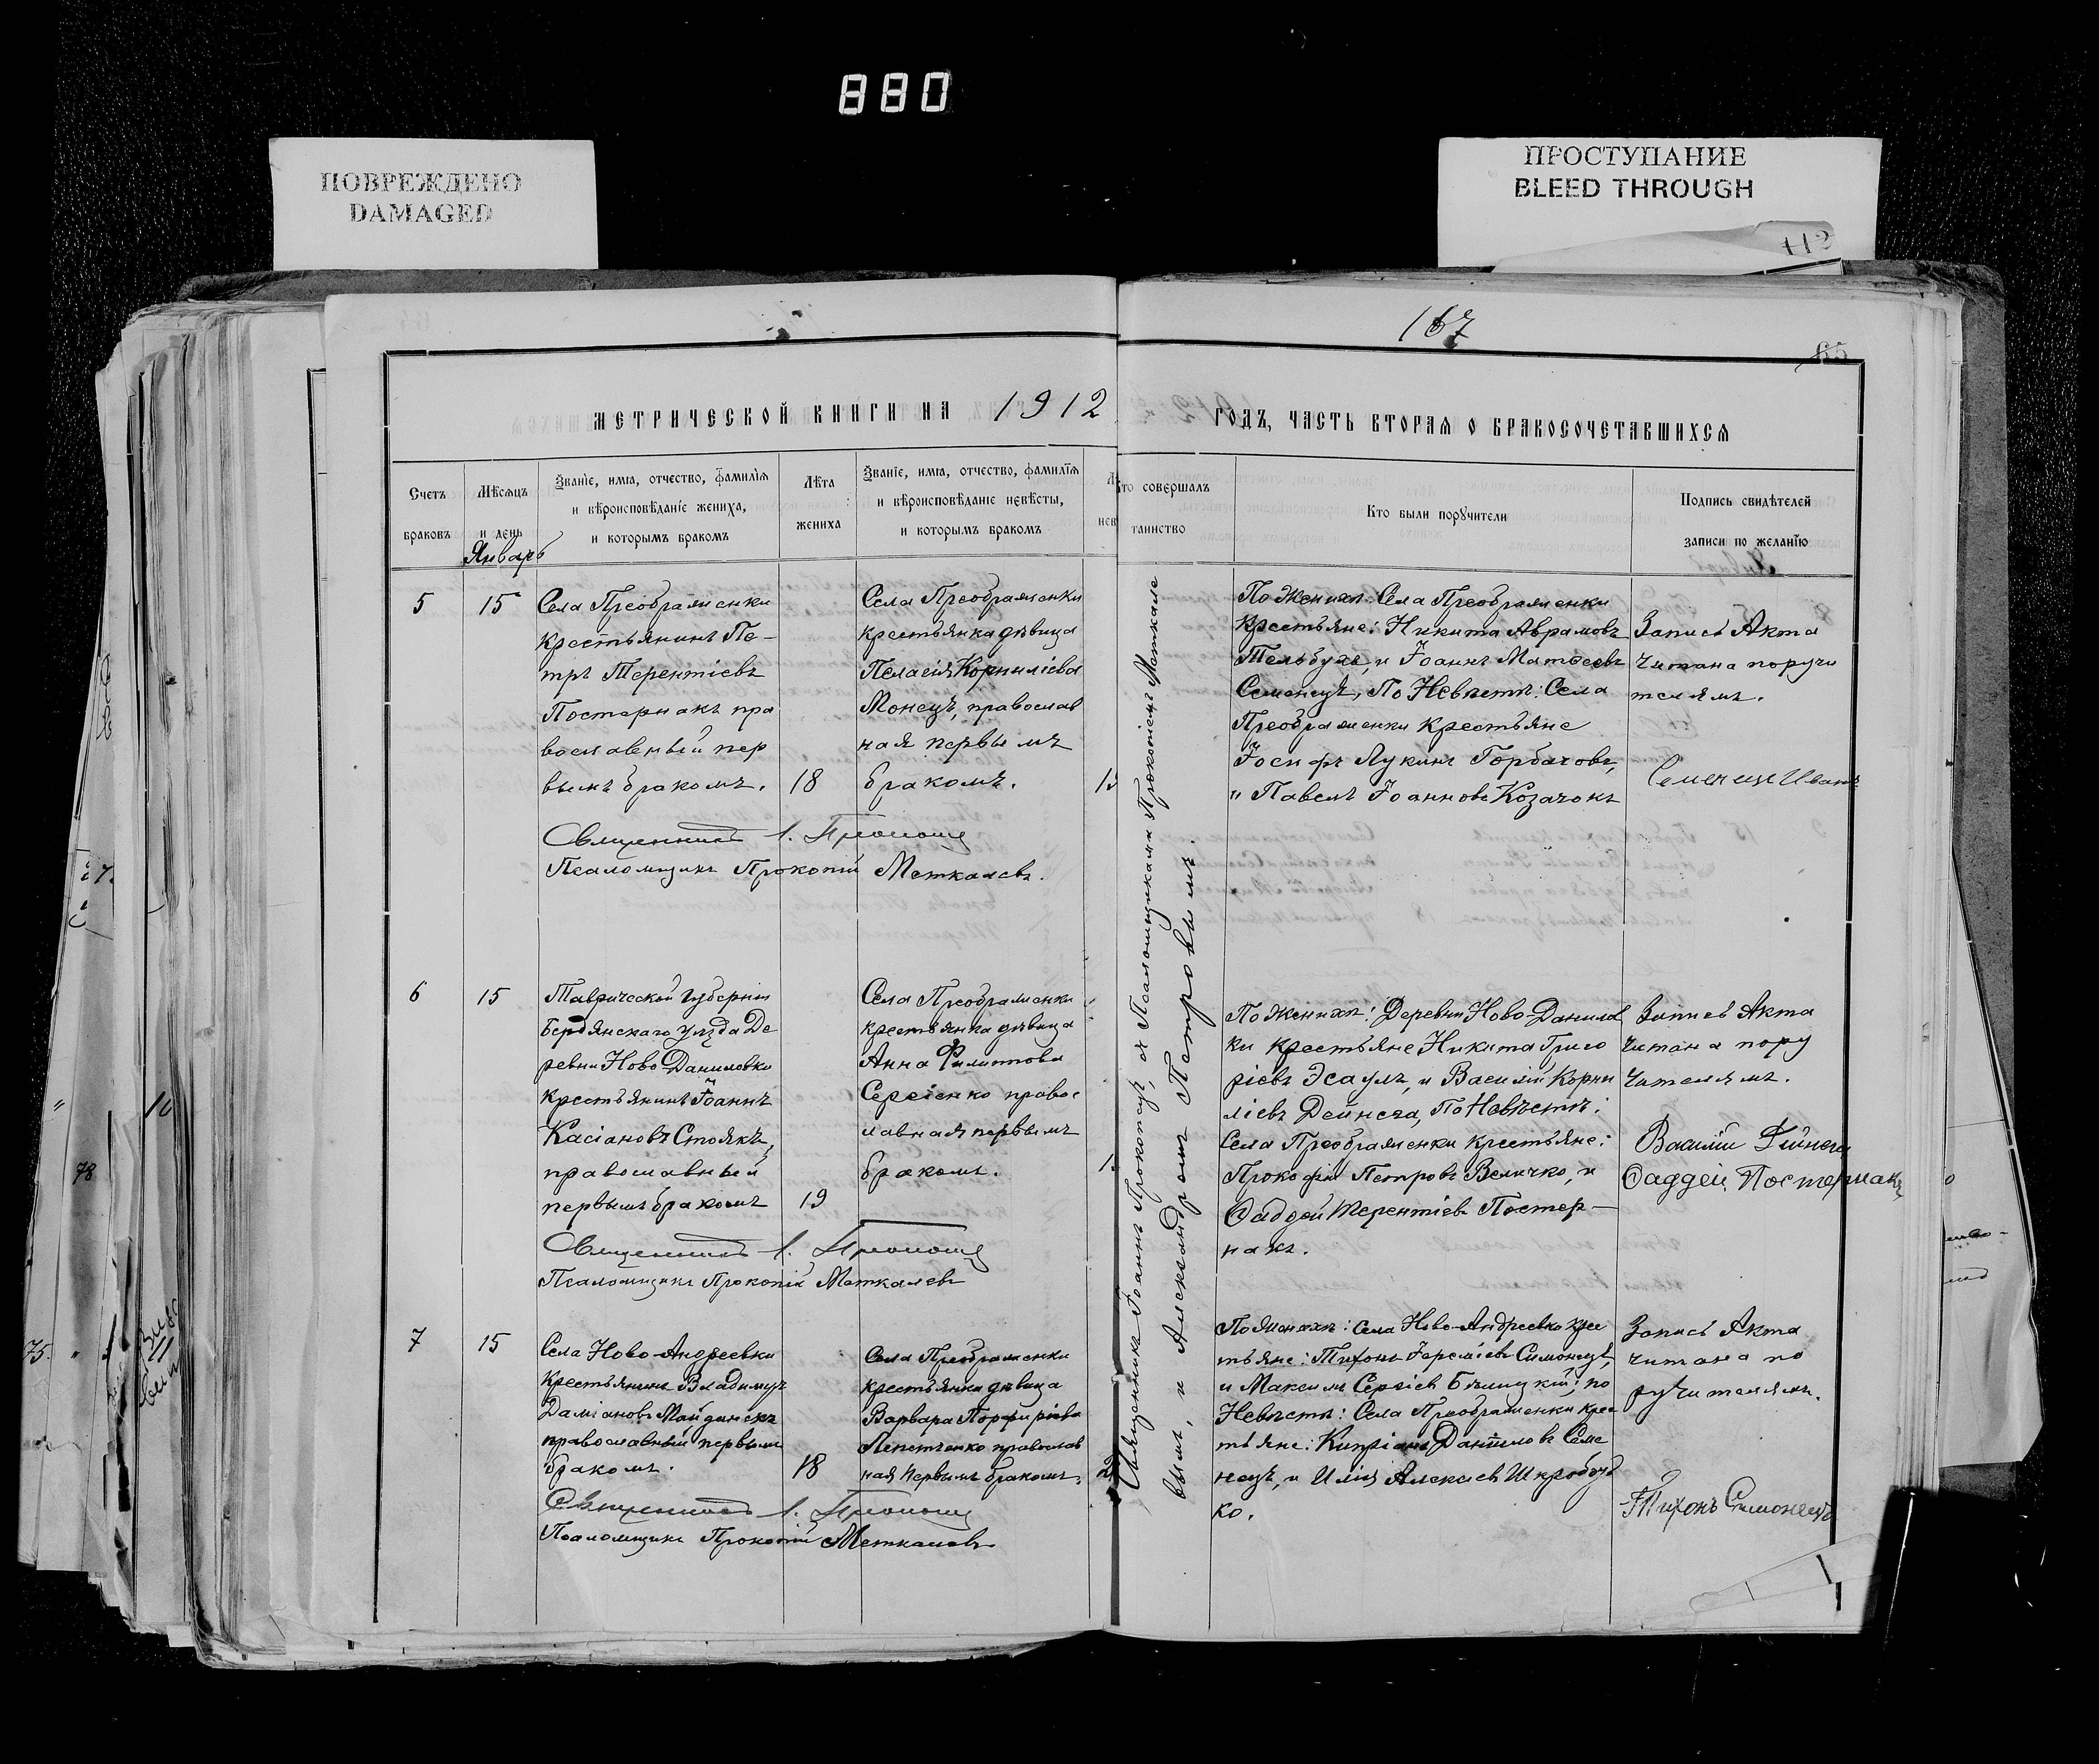 880
ПОВРЕЖДЕНО
DAMAGED
ПРОСТУПАНИЕ
BLEED THROUGH
112
167
65
МЕТРИЧЕСКОЙ КНИГИ НА 1912 ГОДЪ, ЧАСТЬ ВТОРАЯ О БРАКОСОЧЕТАВШИХСЯ
Счетъ
браковъ
Мѣсяцъ
и день
Январь
Званіе, имя, отчество, фамилія
и вѣроисповѣданіе жениха,
и которымъ бракомъ
Лѣта
жениха
Званіе, имя, отчество, фамилія
и вѣроисповѣданіе невѣсты,
и которымъ бракомъ
нев
то совершалъ
таинство
Кто были поручители
Подпись свидѣтелей
записи по желанію
5
15
Села Преображенки
крестьянинъ Пе-
тръ Терентіевъ
Постернакъ пра
вославный пер
вымъ бракомъ.
18
Села Преображенки
крестьянка дѣвица
Пелагія Корниліева
Монецъ, православ
ная первымъ
бракомъ.
По Женихѣ: Села Преображенки
крестьяне: Никита Аврамовъ
Тельбухъ, и Іоаннъ Матѳеевъ
Семенецъ, По Невѣстѣ: Села
Преображенки крестьяне
Іосифъ Лукинъ Горбачовъ,
и Павелъ Іоанновъ Козачокъ
Запись Акта
читана поручи
телямъ.
Семенецъ Иванъ
Священникъ І. Прокопец
Псаломщикъ Прокопій Меткалевъ.
6
15
Таврической губерніи
Бердянскаго уѣзда Де
ревни Ново-Даниловки
крестьянинъ Іоаннъ
Касіановъ Стоякъ,
православный
первымъ бракомъ
19
Села Преображенки
крестьянка дѣвица
Анна Филиппова
Сергіенко правос
лавная первымъ
бракомъ.
По Женихѣ: Деревни Ново-Данилов
ки крестьяне Никита Григо
ріевъ Эсаулъ, и Василій Корни
ліевъ Дейнега, По Невѣстѣ:
Села Преображенки крестьяне:
Прокофій Петровъ Величко, и
Ѳаддей Терентіевъ Постер-
накъ.
Запись Акта
читана пору
чителямъ.
Василій Дейнега
Ѳаддей Постернакъ
Священникъ І. Прокопец
Псаломщикъ Прокопій Меткалевъ
7
15
Села Ново-Андреевки
крестьянинъ Владимиръ
Даміановъ Майданекъ
православный первымъ
бракомъ.
18
Села Преображенки
крестьянка дѣвица
Варвара Порфиріева
Лепетченко православ
ная первымъ бракомъ.
По Женихѣ: Села Ново-Андреевки крес
тьяне: Тихонъ Іереміевъ Симонецъ,
и Максимъ Сергіевъ Бѣлицкій; по
Невѣстѣ: Села Преображенки крес
тьяне: Кипріанъ Даніиловъ Семе
нецъ, и Илія Алексіевъ Шкробутъ
ко.
Запись Акта
читана по
ручителямъ.
Тихонъ Симонецъ
Священникъ І. Прокопец
Псаломщикъ Прокопій Меткалевъ
Священникъ Іоаннъ Прокопецъ, съ Псаломщиками Прокопіемъ Меткале
вымъ, и Александромъ Петровымъ.